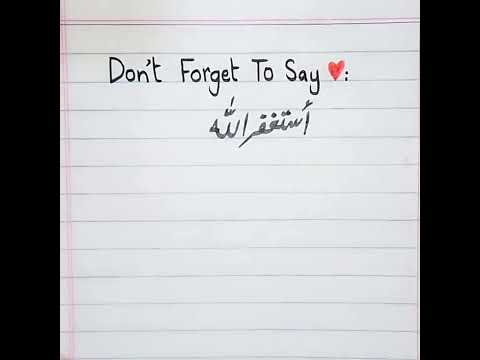 Don't Forget To Say ❤:
أستغفر الله